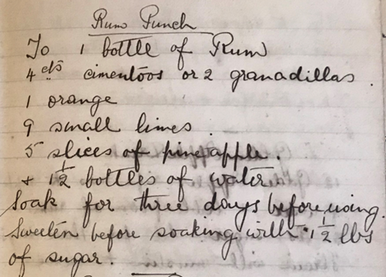 Rum Punch
To 1 bottle of Rum
4 cts cimentoos or 2 granadillas.
1 orange
9 small limes.
5 slices of pineapple.
+ 1½ bottles of water
Soak for three days before using
Sweeten before soaking with 1½ lbs
of sugar.